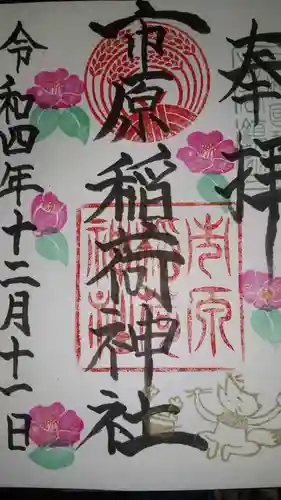 奉拝
市原稲荷神社
市原稲荷神社
令和四年十二月十一日